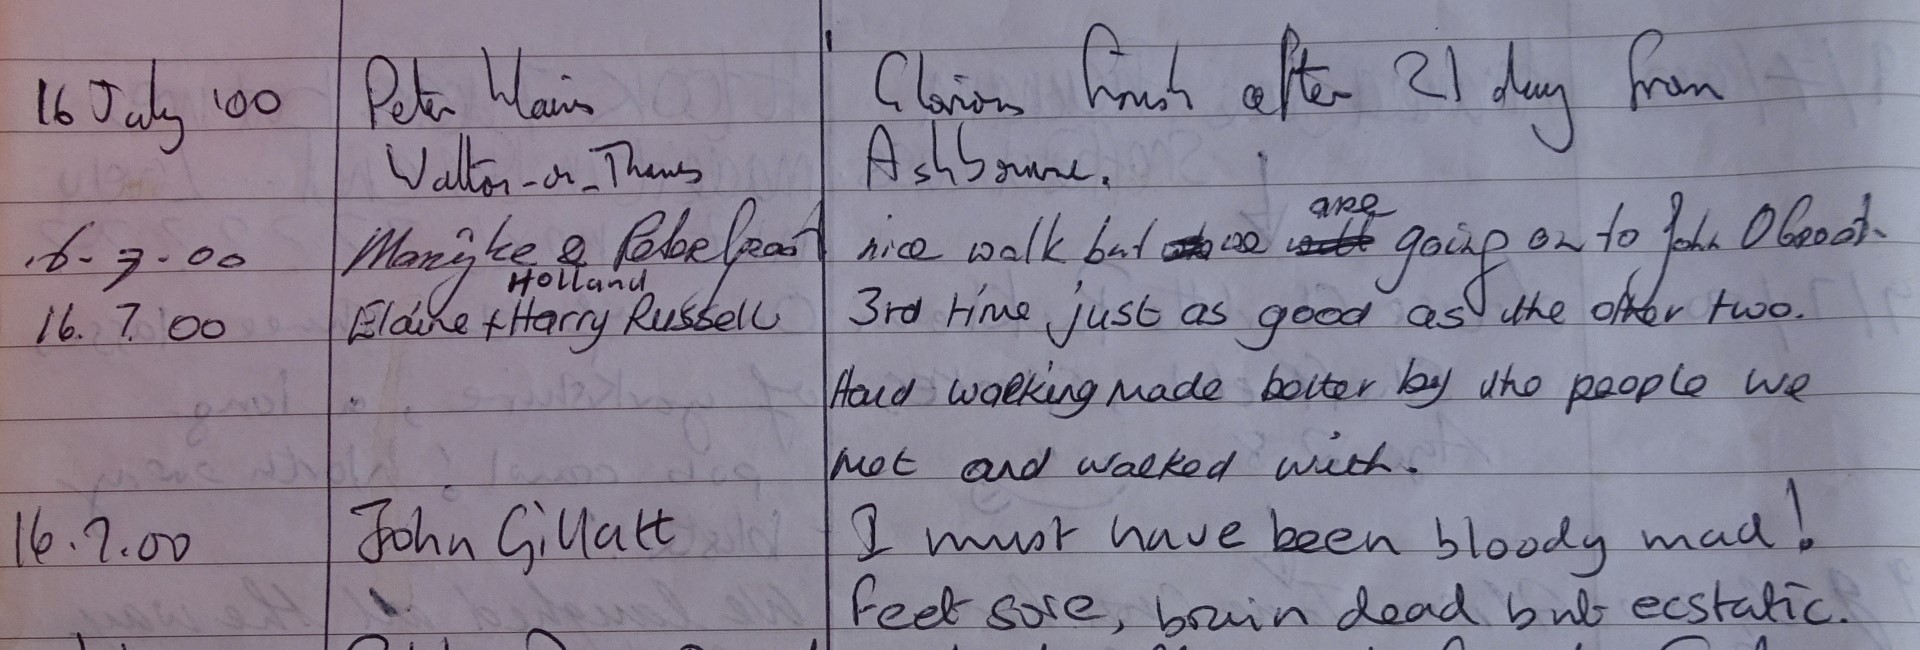 16 July '00 Peter Glorious finish after 21 day from
Walton-on-Thames Ashbourne.
are
16-7-00 Marijke & Peter nice walk but we going on to John OGroat.
Holland
16.7.00 Elaine + Harry Russell 3rd time just as good as the other two.
Hard walking made better by the people we
met and walked with.
16.7.00 John Gillatt I must have been bloody mad!
Feet sore, brain dead but ecstatic.